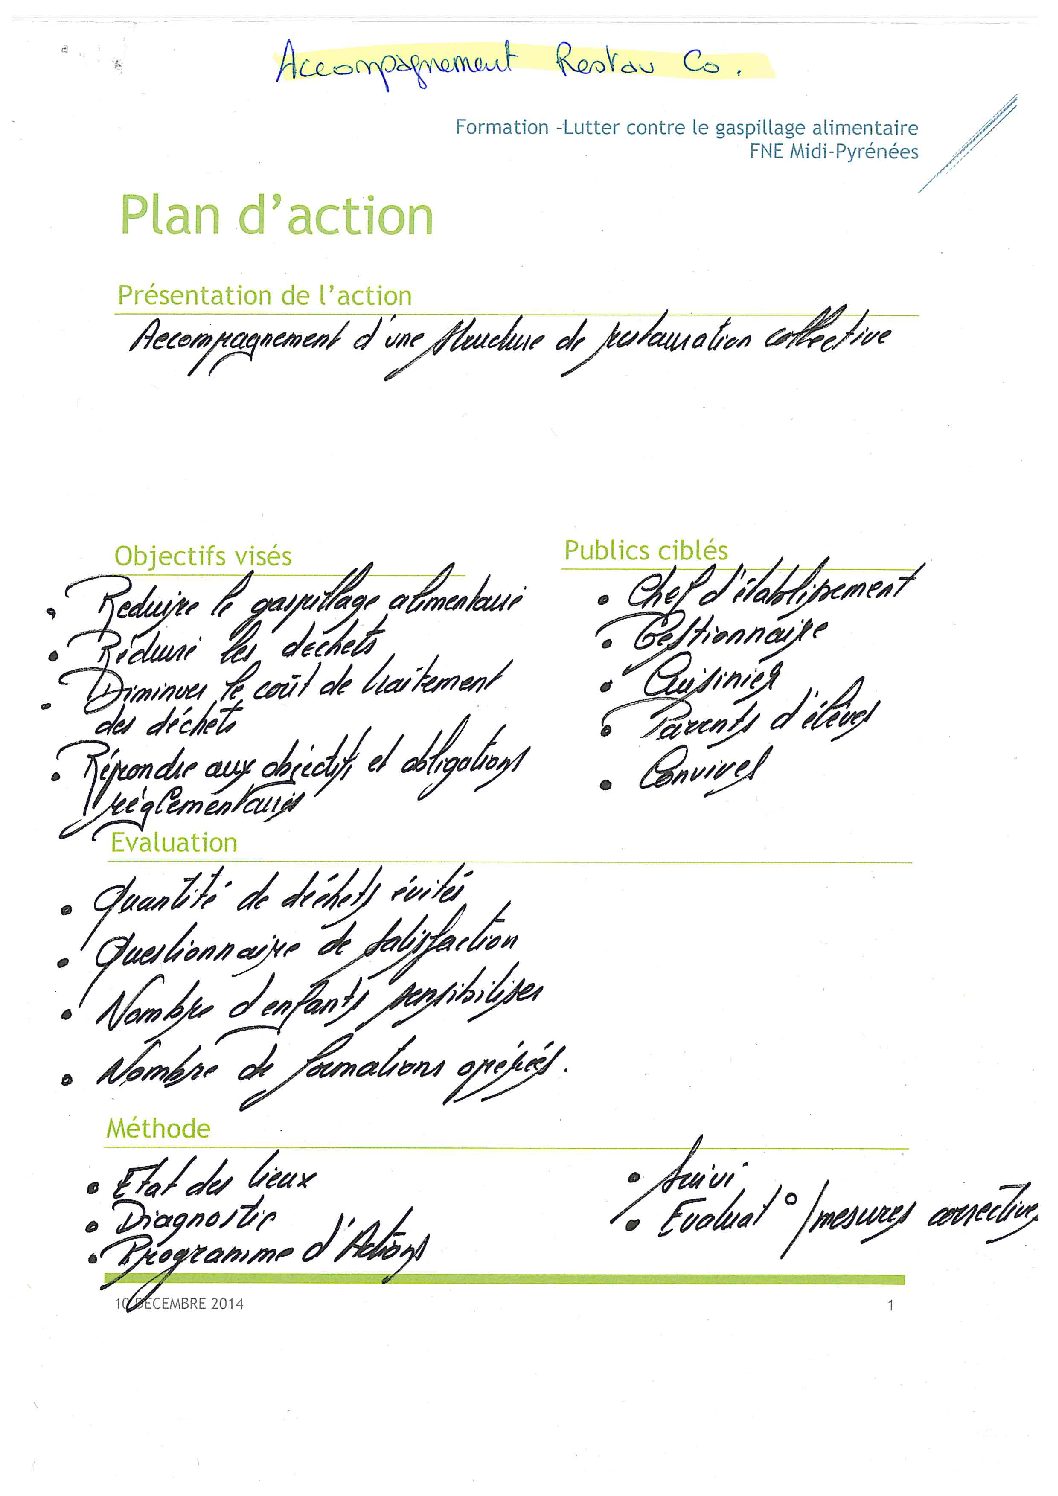 Accompagnement Restau Co.
Formation -Lutter contre le gaspillage alimentaire
FNE Midi-Pyrénées
Plan d'action
Présentation de l'action
Accompagnement d'une structure de restauration collective
Objectifs visés
• Reduire le gaspillage alimentaire
• Réduire les déchets
• Diminuer le coût de traitement
des déchets
• Répondre aux objectifs et obligations
réglementaires
Publics ciblés
• Chef d'établissement
• Gestionnaire
• Cuisinier
• Parents d'élèves
• Convives
Evaluation
• Quantité de déchets évités
• Questionnaire de satisfaction
• Nombre d'enfants sensibilisés
• Nombre de formations opérées.
Méthode
• Etat des lieux
• Diagnostic
• Programme d'Actions
• Suivi
• Evaluat° / mesures correctives
10 DECEMBRE 2014
1